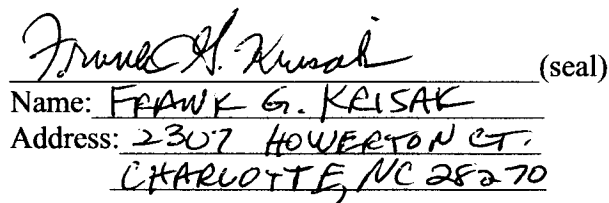 Frank G. Krisak (seal)
Name: FRANK G. KRISAK
Address: 2307 HOWERTON CT.
CHARLOTTE, NC 28270